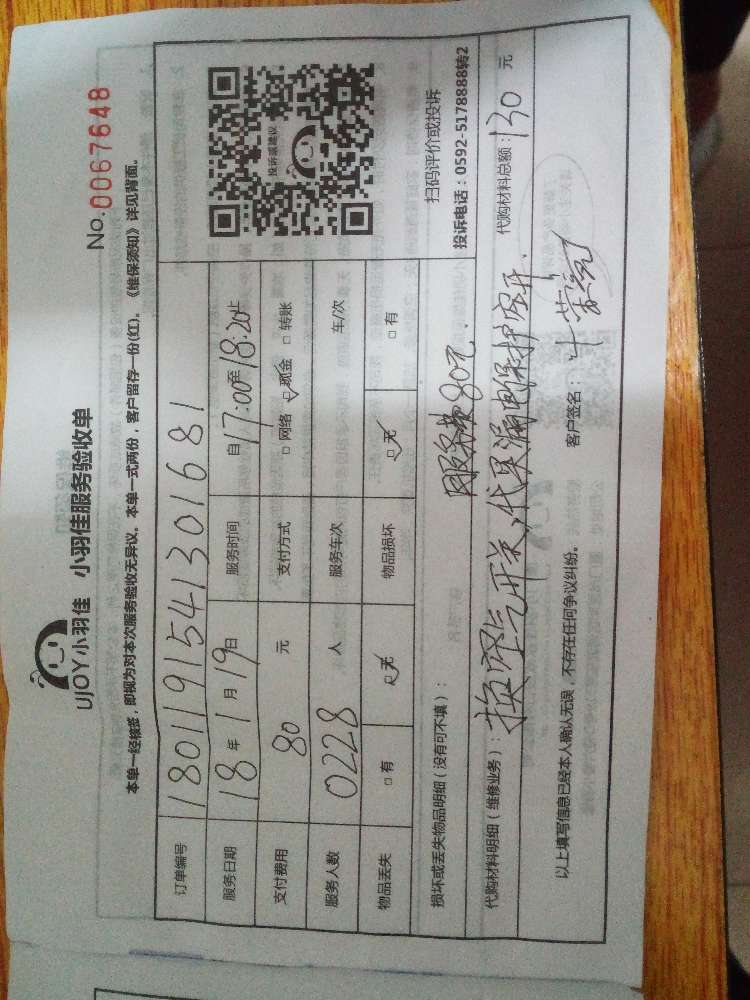 UJOY小羽佳 小羽佳服务验收单
No.0067648
本单一经核签,即视为对本次服务验收无异议。本单一式两份,客户留存一份(红)。《维保须知》详见背面。
订单编号 180119154130 1681
服务日期 18年1月19日 服务时间 自17:00至18:20止
支付费用 80 元 支付方式 □网络 ☑现金 □转账
服务人数 0228 人 服务车次 车/次
物品丢失 □有 ☑无 物品损坏 ☑无 □有
投诉或建议
扫码评价或投诉
投诉电话:0592-5178888转2
损坏或丢失物品明细(没有可不填): 服务费80元.
代购材料明细(维修业务): 换空气开关,代买漏电保护空开. 代购材料总额:130元
以上填写信息已经本人确认无误,不存在任何争议纠纷。 客户签名: